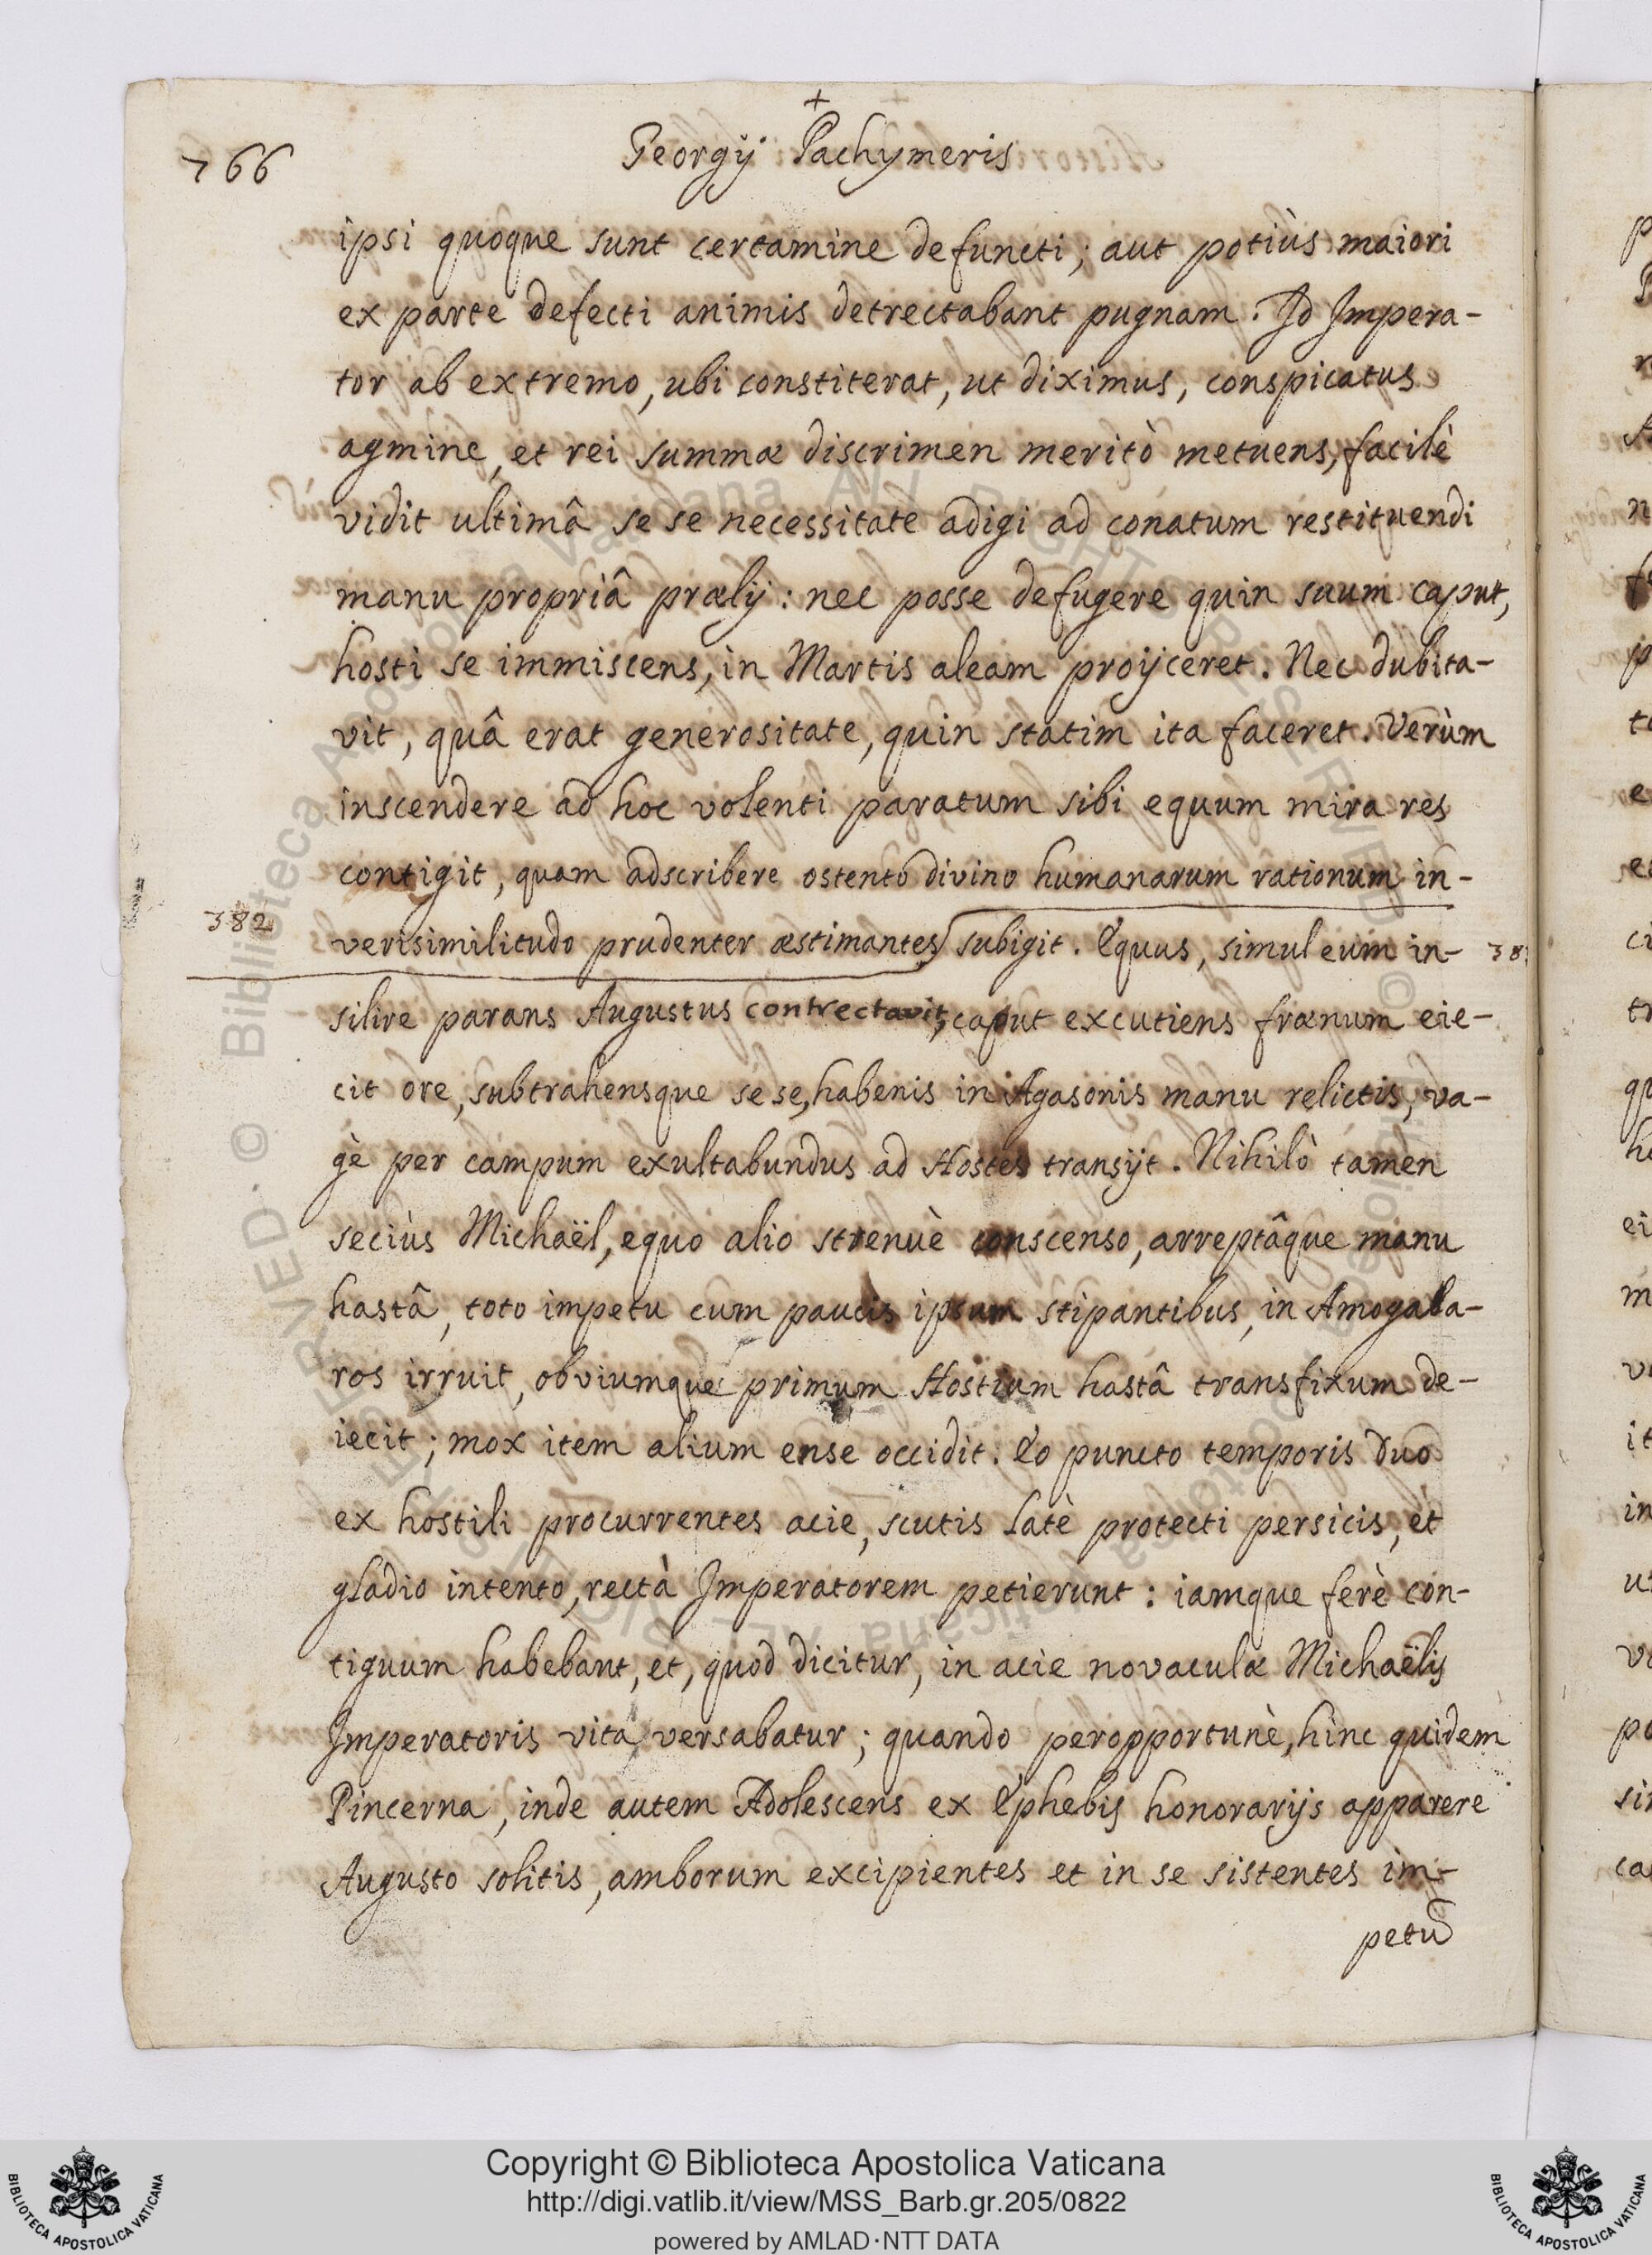 +
766
Georgij Pachymeris
ipsi quoque sunt certamine defuncti; aut potiùs maiori
ex parte defecti animis detrectabant pugnam. Id Impera-
tor ab extremo, ubi constiterat, ut diximus, conspicatus
agmine, et rei summæ discrimen meritò metuens, facilè
vidit ultimâ se se necessitate adigi ad conatum restituendi
manu propriâ prælij: nec posse defugere quin suum caput,
hosti se immiscens, in Martis aleam proijceret. Nec dubita-
vit, quâ erat generositate, quin statim ita faceret. Verùm
inscendere ad hoc volenti paratum sibi equum mira res
contigit, quam adscribere ostento divino humanarum rationum in-
382
verisimilitudo prudenter æstimantes subigit. Equus, simul eum in-
38
silire parans Augustus contrectavit, caput excutiens frænum eie-
cit ore, subtrahensque se se, habenis in Agasonis manu relictis, va-
gè per campum exultabundus ad Hostes transijt. Nihilò tamen
seciùs Michaël, equo alio strenuè conscenso, arreptâque manu
hastâ, toto impetu cum paucis ipsum stipantibus, in Amogaba-
ros irruit, obviumque primum Hostium hastâ transfixum de-
iecit; mox item alium ense occidit. Eo puncto temporis duo
ex hostili procurrentes acie, scutis latè protecti persicis, et
gladio intento, rectà Imperatorem petierunt: iamque ferè con-
tiguum habebant, et, quod dicitur, in acie novaculæ Michaëlis
Imperatoris vita versabatur; quando peropportunè, hinc quidem
Pincerna, inde autem Adolescens ex Ephebis honorarijs apparere
Augusto solitis, amborum excipientes et in se sistentes im-
petū
Copyright © Biblioteca Apostolica Vaticana
http://digi.vatlib.it/view/MSS_Barb.gr.205/0822
powered by AMLAD·NTT DATA
BIBLIOTECA APOSTOLICA VATICANA
BIBLIOTECA APOSTOLICA VATICANA